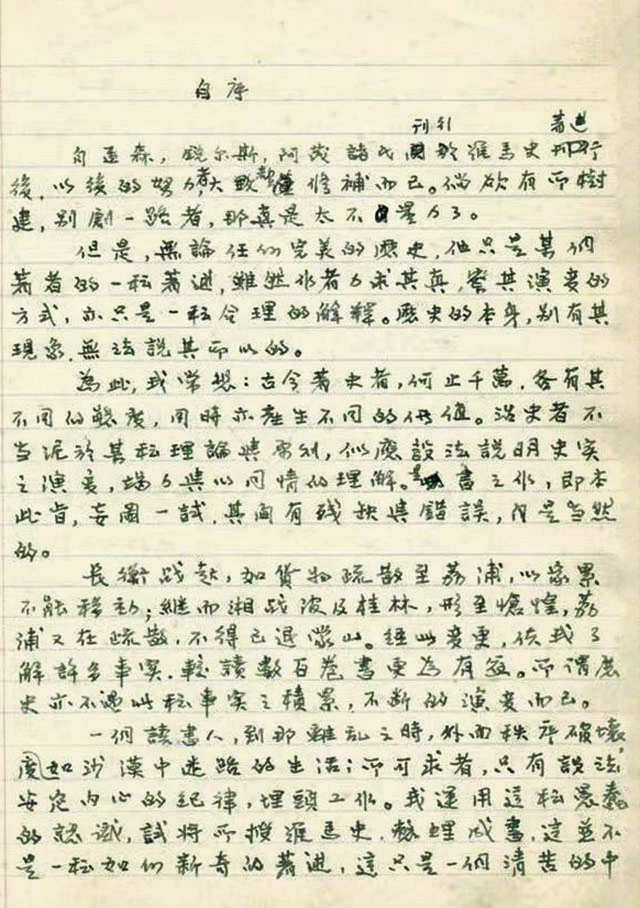 自序
刊行 著述
自孟森,鴕尔斯,阿茂諸氏關於羅馬史刊行
後,以後的努力者大致都僅修補而已。倘欲有所樹
建,别創一路者,那真是太不量力了。
但是,無論任何完美的歷史,他只是某個
著者的一種著述,雖然作者力求其真,察其演变的
方式,亦只是一種合理的解釋。歷史的本身,别有其
現象,無法說其所以的。
為此,我常想:古今著史者,何止千萬,各有其
不同的態度,同時亦產生不同的價值。治史者不
當泥於某種理論與原則,似應設法說明史实
之演变,竭力與以同情的理解。書之作,即本
此旨,妄圖一試,其间有残缺與錯誤,乃是当然
的。
長衡战起,如貨物疏散至荔浦,以家累
不能移動;继而湘战波及桂林,形至愴惶,荔
浦又在疏散,不得已退蒙山。經此变更,使我了
解許多事实,較讀數百卷書更為有效。所謂歷
史亦不過此種事实之積累,不断的演变而已。
一個讀書人,到那離乱之時,外面秩序破壞
度如沙漠中迷路的生活;所可求者,只有設法
安定内心的纪律,埋頭工作。我運用這種愚蠢
的認識,試將所授羅馬史,整理成書,這並不
是一種如何新奇的著述,這只是一個清苦的中